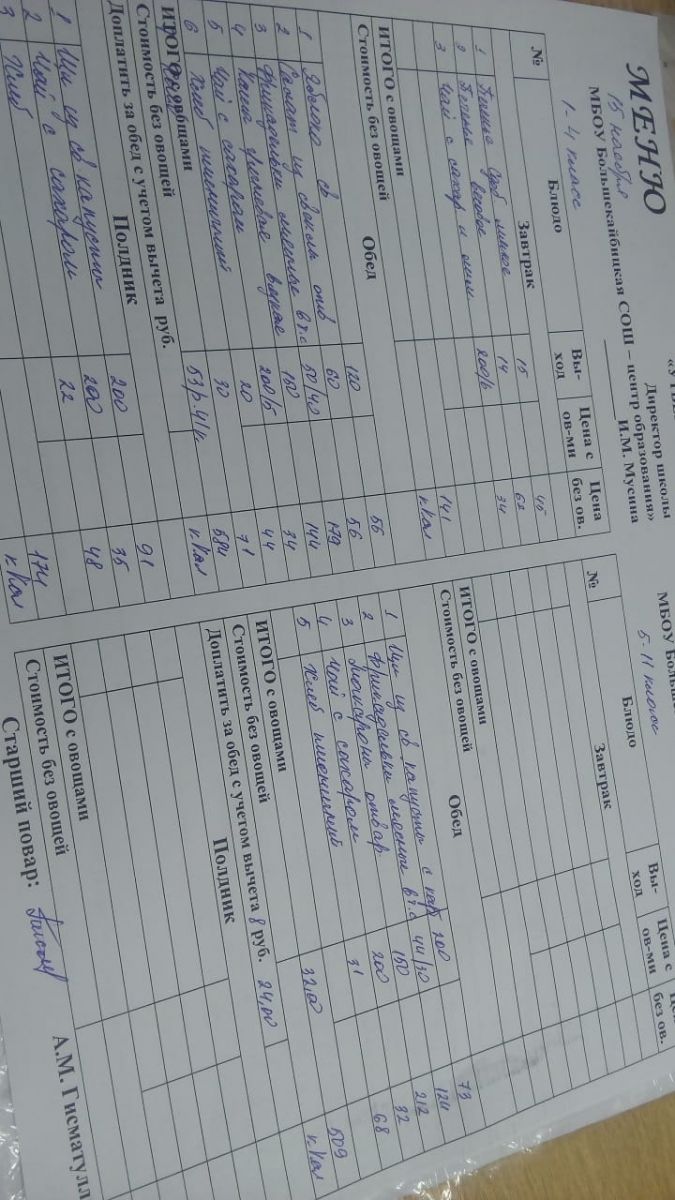 «УТВЕ
Директор школы
МБОУ Большекайбицкая СОШ – центр образования»
И.М. Мусина
МЕНЮ
15 ноября
1-4 класс
№ Блюдо Вы-ход Цена с ов-ми Цена без ов.
Завтрак
1 15 45
2 Печенье весовое 14 62
3 Чай с сахар и лим 200/6 34
141
ккал
ИТОГО с овощами
Стоимость без овощей
Обед
1 Яблоко св 120 56
2 Салат из свеклы отв 60 56
3 Фрикадельки мясные в т.с 50/40 144
4 Каша рисовая 150 179
5 Чай с сахаром 200/5 34
6 Хлеб пшеничный 20 44
30 71
584
ккал
ИТОГО с овощами 53р.41к
Стоимость без овощей
Доплатить за обед с учетом вычета руб.
Полдник
1 Щи из св капусты 200 91
2 Чай с сахаром 200 35
3 Хлеб 22 48
174
ккал
МБОУ Больше
5-11 классы
№ Блюдо Вы-ход Цена с ов-ми Це без ов.
Завтрак
ИТОГО с овощами
Стоимость без овощей
Обед
1 Щи из св капусты с кар 200 73
2 Фрикадельки мясные в т.с 44/30 124
3 Макароны отвар 150 212
4 Чай с сахаром 200 32
5 Хлеб пшеничный 31 68
509
ккал
ИТОГО с овощами 32,00
Стоимость без овощей
Доплатить за обед с учетом вычета 8 руб. 24,00
Полдник
ИТОГО с овощами
Стоимость без овощей
Старший повар: А.М. Гисматулл